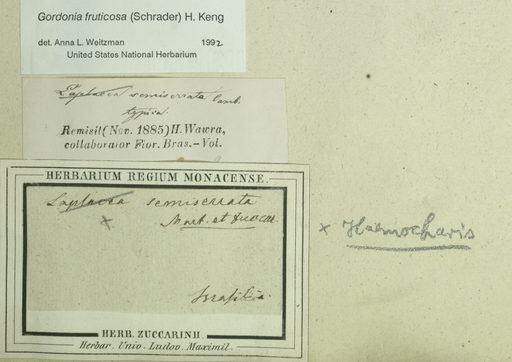 Gordonia fruticosa (Schrader) H. Keng
det. Anna L. Weitzman 1992
United States National Herbarium
Laplacea semiserrata Camb.
typica.
Remisit (Nov. 1885) H. Wawra,
collaborator Flor. Bras. - Vol.
HERBARIUM REGIUM MONACENSE.
Laplacea semiserrata
x Mart. et Zucc.
x Haemocharis
Brasilia.
HERB. ZUCCARINII
Herbar. Univ. Ludov. Maximil.